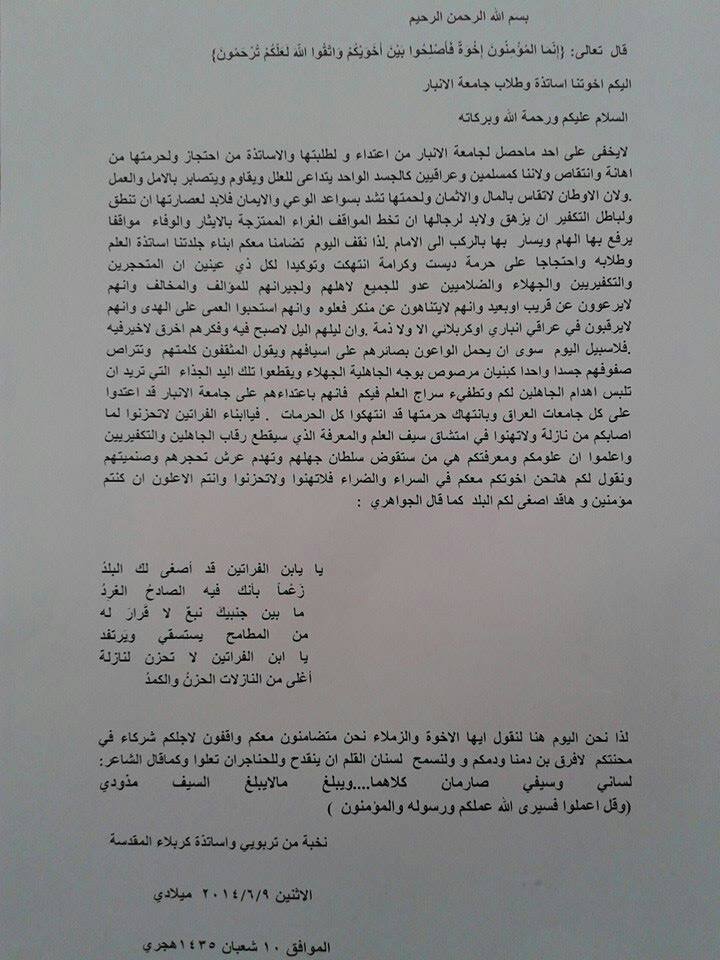 بسم الله الرحمن الرحيم
قال تعالى: {إِنَّمَا المُؤْمِنُونَ إِخْوَةٌ فَأَصْلِحُوا بَيْنَ أَخَوَيْكُمْ وَاتَّقُوا اللهَ لَعَلَّكُمْ تُرْحَمُونَ}
اليكم اخوتنا اساتذة وطلاب جامعة الانبار
السلام عليكم ورحمة الله وبركاته
لايخفى على احد ماحصل لجامعة الانبار من اعتداء و لطلبتها والاساتذة من احتجاز ولحرمتها من
اهانة وانتقاص ولاننا كمسلمين وعراقيين كالجسد الواحد يتداعى للعلل ويقاوم ويتصابر بالامل والعمل
.ولان الاوطان لاتقاس بالمال والاثمان ولحمتها تشد بسواعد الوعي والايمان فلابد لعصارتها ان تنطق
ولباطل التكفير ان يزهق ولابد لرجالها ان تخط المواقف الغراء الممتزجة بالايثار والوفاء مواقفا
يرفع بها الهام ويسار بها بالركب الى الامام .لذا نقف اليوم تضامنا معكم ابناء جلدتنا اساتذة العلم
وطلابه واحتجاجا على حرمة ديست وكرامة انتهكت وتوكيدا لكل ذي عينين ان المتحجرين
والتكفيريين والجهلاء والضلاميين عدو للجميع لاهلهم ولجيرانهم للمؤالف والمخالف وانهم
لايرعوون عن قريب اوبعيد وانهم لايتناهون عن منكر فعلوه وانهم استحبوا العمى على الهدى وانهم
لايرقبون في عراقي انباري اوكربلاني الا ولا ذمة .وان ليلهم اليل لاصبح فيه وفكرهم اخرق لاخيرفيه
.فلاسبيل اليوم سوى ان يحمل الواعون بصائرهم على اسيافهم ويقول المثقفون كلمتهم وتتراص
صفوفهم جسدا واحدا كبنيان مرصوص بوجه الجاهلية الجهلاء ويقطعوا تلك اليد الجذاء التي تريد ان
تلبس اهدام الجاهلين لكم وتطفيء سراج العلم فيكم فانهم باعتداءهم على جامعة الانبار قد اعتدوا
على كل جامعات العراق وبانتهاك حرمتها قد انتهكوا كل الحرمات . فياابناء الفراتين لاتحزنوا لما
اصابكم من نازلة ولاتهنوا في امتشاق سيف العلم والمعرفة الذي سيقطع رقاب الجاهلين والتكفيريين
واعلموا ان علومكم ومعرفتكم هي من ستقوض سلطان جهلهم وتهدم عرش تحجرهم وصنميتهم
ونقول لكم هانحن اخوتكم معكم في السراء والضراء فلاتهنوا ولاتحزنوا وانتم الاعلون ان كنتم
مؤمنين و هاقد اصغى لكم البلد كما قال الجواهري :
يا يابن الفراتين قد أصغى لك البلدُ
زَعْماً بأنك فيه الصادحُ الغَرِدُ
ما بين جنبيكَ نبعٌ لا قَرارَ له
من المطامح يستسقي ويَرتفد
يا ابن الفراتين لا تحزن لنازلة
أغلى من النازلات الحزنُ والكمدُ
لذا نحن اليوم هنا لنقول ايها الاخوة والزملاء نحن متضامنون معكم واقفون لاجلكم شركاء في
محنتكم لافرق بن دمنا ودمكم و ولنسمح لسنان القلم ان ينقدح وللحناجران تعلوا وكماقال الشاعر:
لساني وسيفي صارمان كلاهما....ويبلغ مالايبلغ السيف مذودي
(وقل اعملوا فسيرى الله عملكم ورسوله والمؤمنون )
نخبة من تربويي واساتذة كربلاء المقدسة
الاثنين ٢٠١٤/٦/٩ ميلادي
الموافق ١٠ شعبان ١٤٣٥هجري